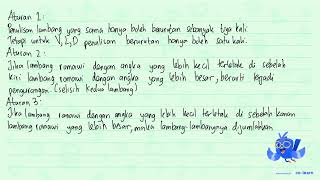 Aturan 1 :
Penulisan lambang yang sama hanya boleh berurutan sebanyak tiga kali.
Tetapi untuk V, L, D penulisan berurutan hanya boleh satu kali.
Aturan 2 :
Jika lambang romawi dengan angka yang lebih kecil terletak di sebelah
kiri lambang romawi dengan angka yang lebih besar, berarti terjadi
pengurangan. (selisih kedua lambang)
Aturan 3 :
Jika lambang romawi dengan angka yang lebih kecil terletak di sebelah kanan
lambang romawi yang lebih besar, maka lambang-lambangnya dijumlahkan
co-learn